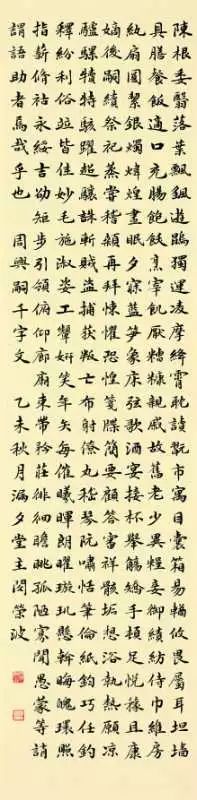 陳根委翳落葉飄颻遊鵾獨運凌摩絳霄耽讀翫市寓目囊箱易輶攸畏屬耳垣墻
具膳餐飯適口充腸飽飫烹宰飢厭糟糠親戚故舊老少異糧妾御績紡侍巾帷房
紈扇圓絜銀燭煒煌晝眠夕寐藍笋象床弦歌酒宴接杯舉觴矯手頓足悅豫且康
嫡後嗣續祭祀蒸嘗稽顙再拜悚懼恐惶牋牒簡要顧答審詳骸垢想浴執熱願凉
驢騾犢特駭躍超驤誅斬賊盗捕獲叛亡布射僚丸嵇琴阮嘯恬筆倫紙鈞巧任釣
釋紛利俗竝皆佳妙毛施淑姿工顰妍笑年矢每催曦暉朗曜璇璣懸斡晦魄環照
指薪脩祜永綏吉劭矩步引領俯仰廊廟束帶矜莊徘徊瞻眺孤陋寡聞愚蒙等誚
謂語助者焉哉乎也 周興嗣千字文 乙未秋月漏夕堂主閔榮波